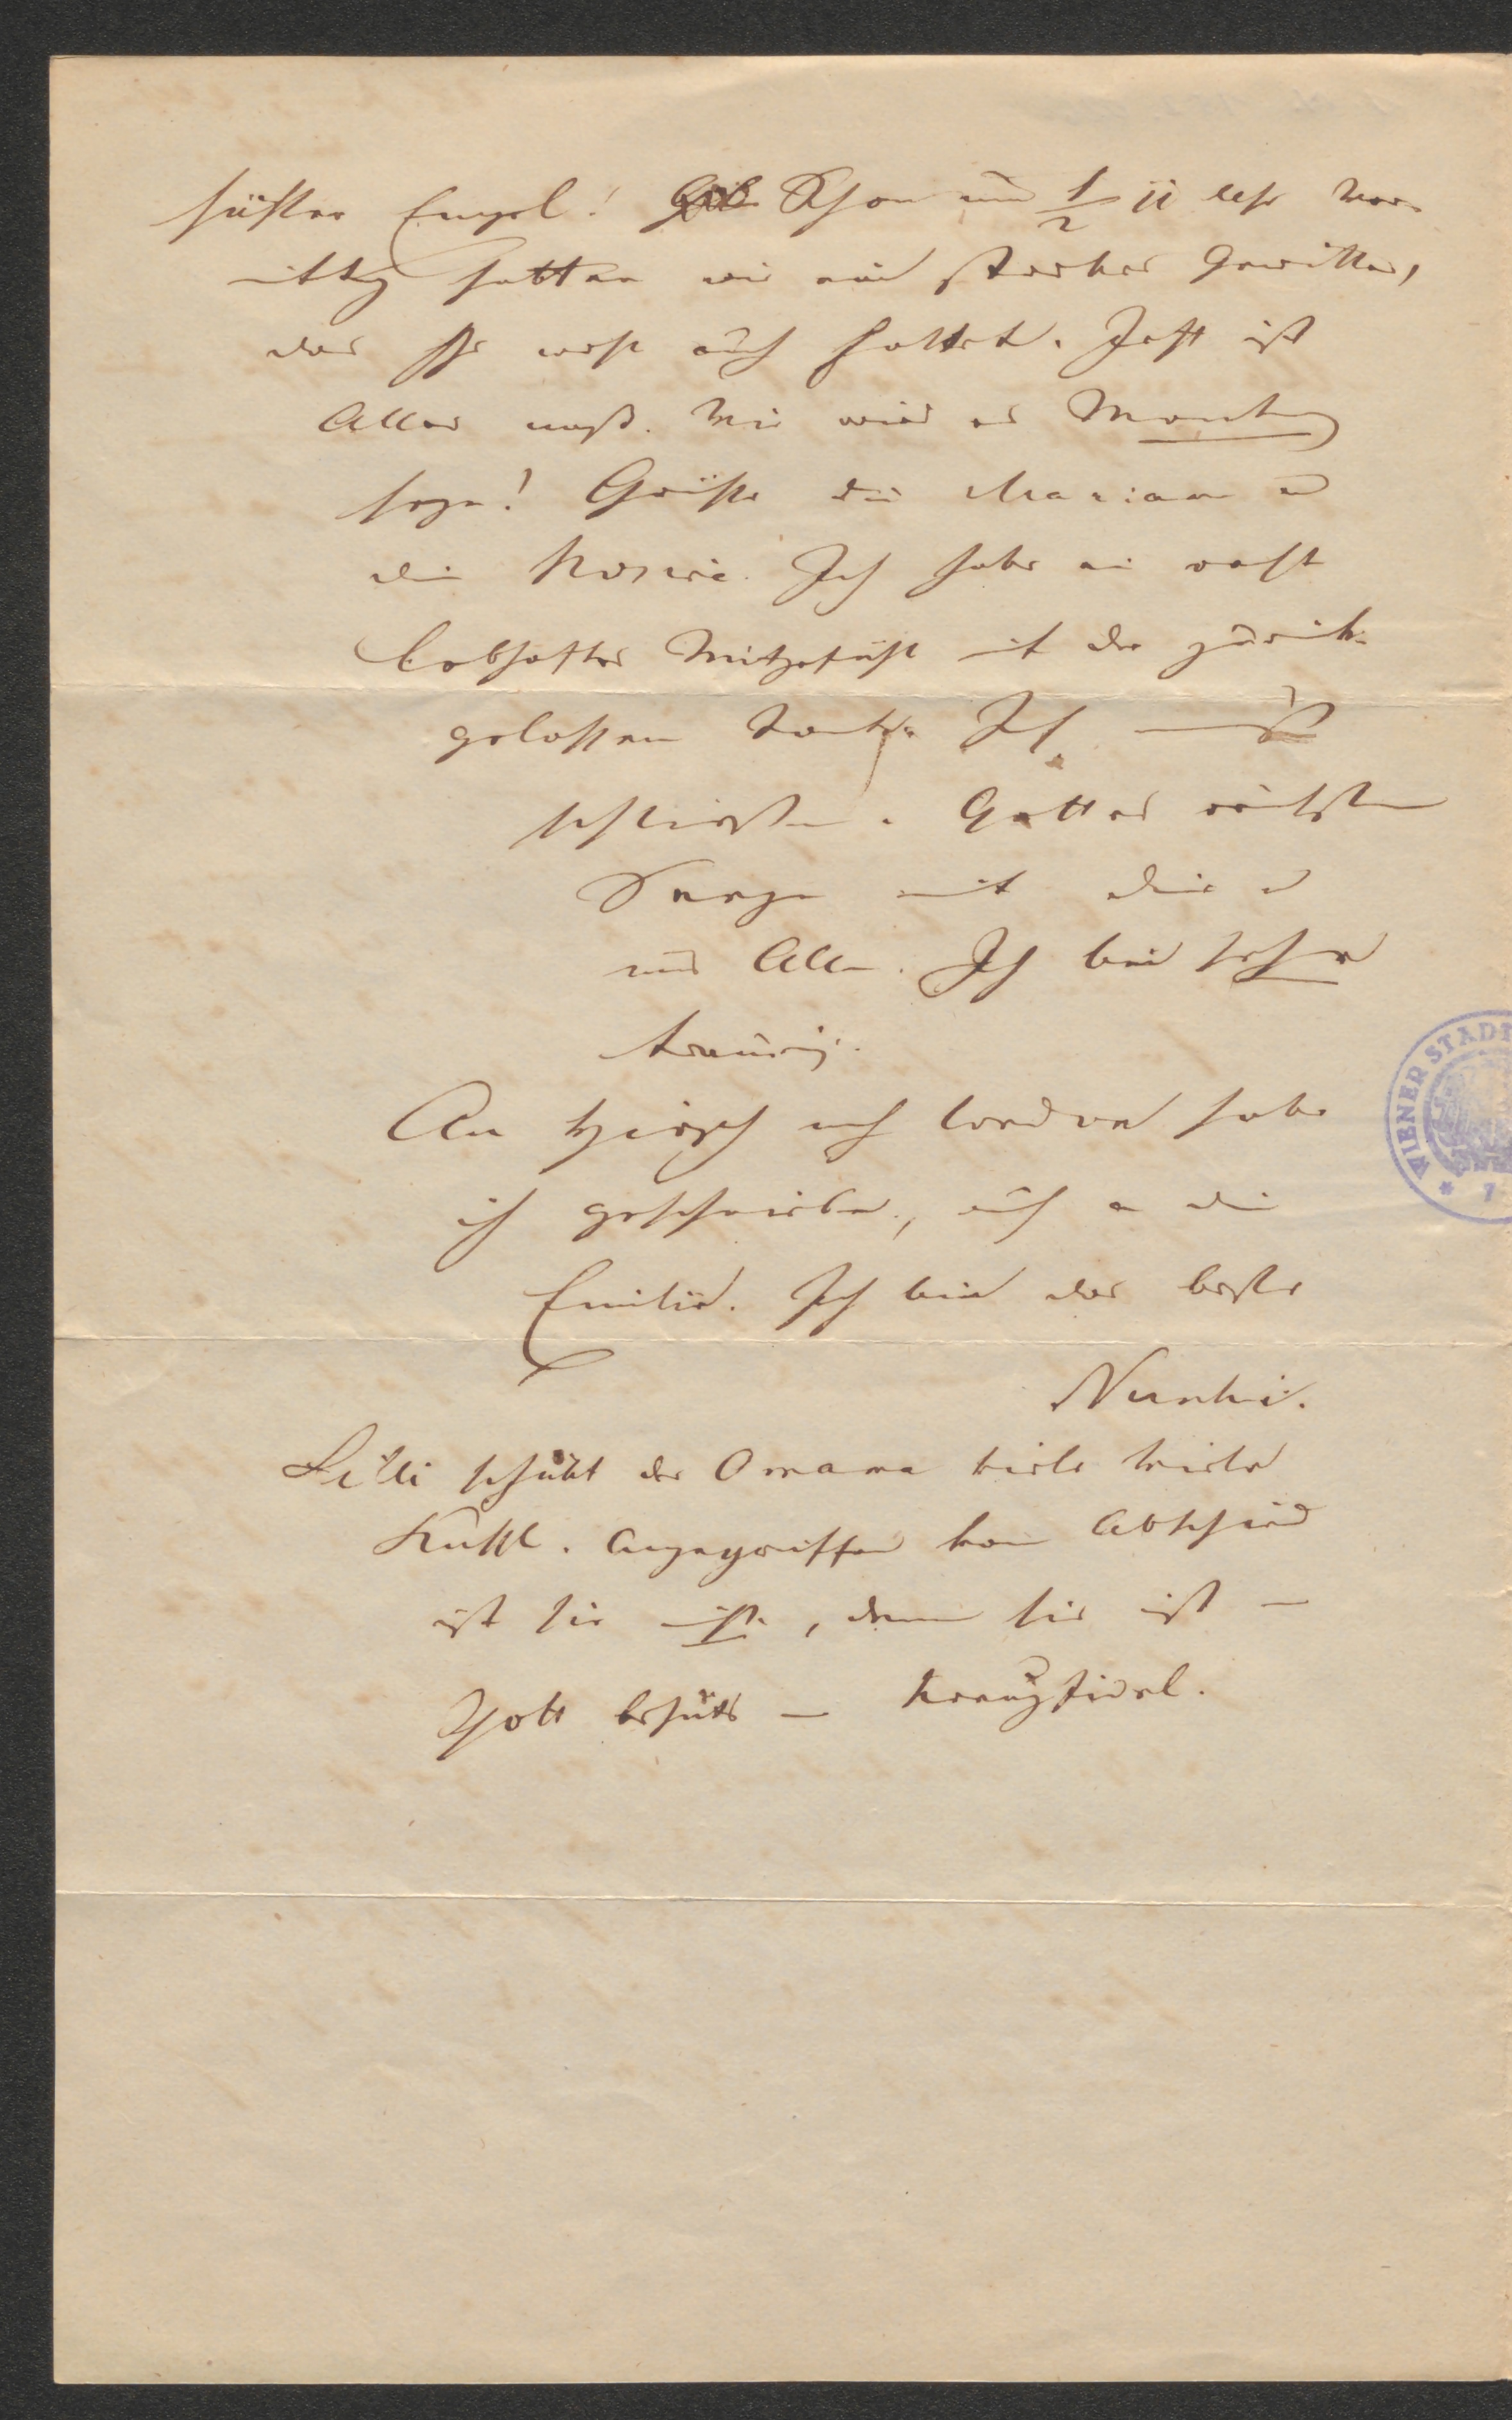 süßer Engel! Schon um 1/2 11 Uhr Vor-
mittag hatten wir ein starkes Gewitter,
das Ihr wohl auch hattet. Jetzt ist
Alles naß. Wie wird es Montag
sein! Grüße die Mariam u
die Rosine. Ich habe ein recht
lebhaftes Mitgefühl mit der zurück-
gelassenen Tante. Ich muß
schließen. Gottes reichsten
Segen mit dir u
uns Allen. Ich bin sehr
traurig.
An Hirsch nach London habe
ich geschrieben, auch an die
Emilie. Ich bin das beste
Nunki.
Lilli schickt der Omama viele viele
Küsse. Angegriffen vom Abschied
ist sie nicht, denn sie ist –
Gott behüte – kreuzfidel.
WIENER STADT